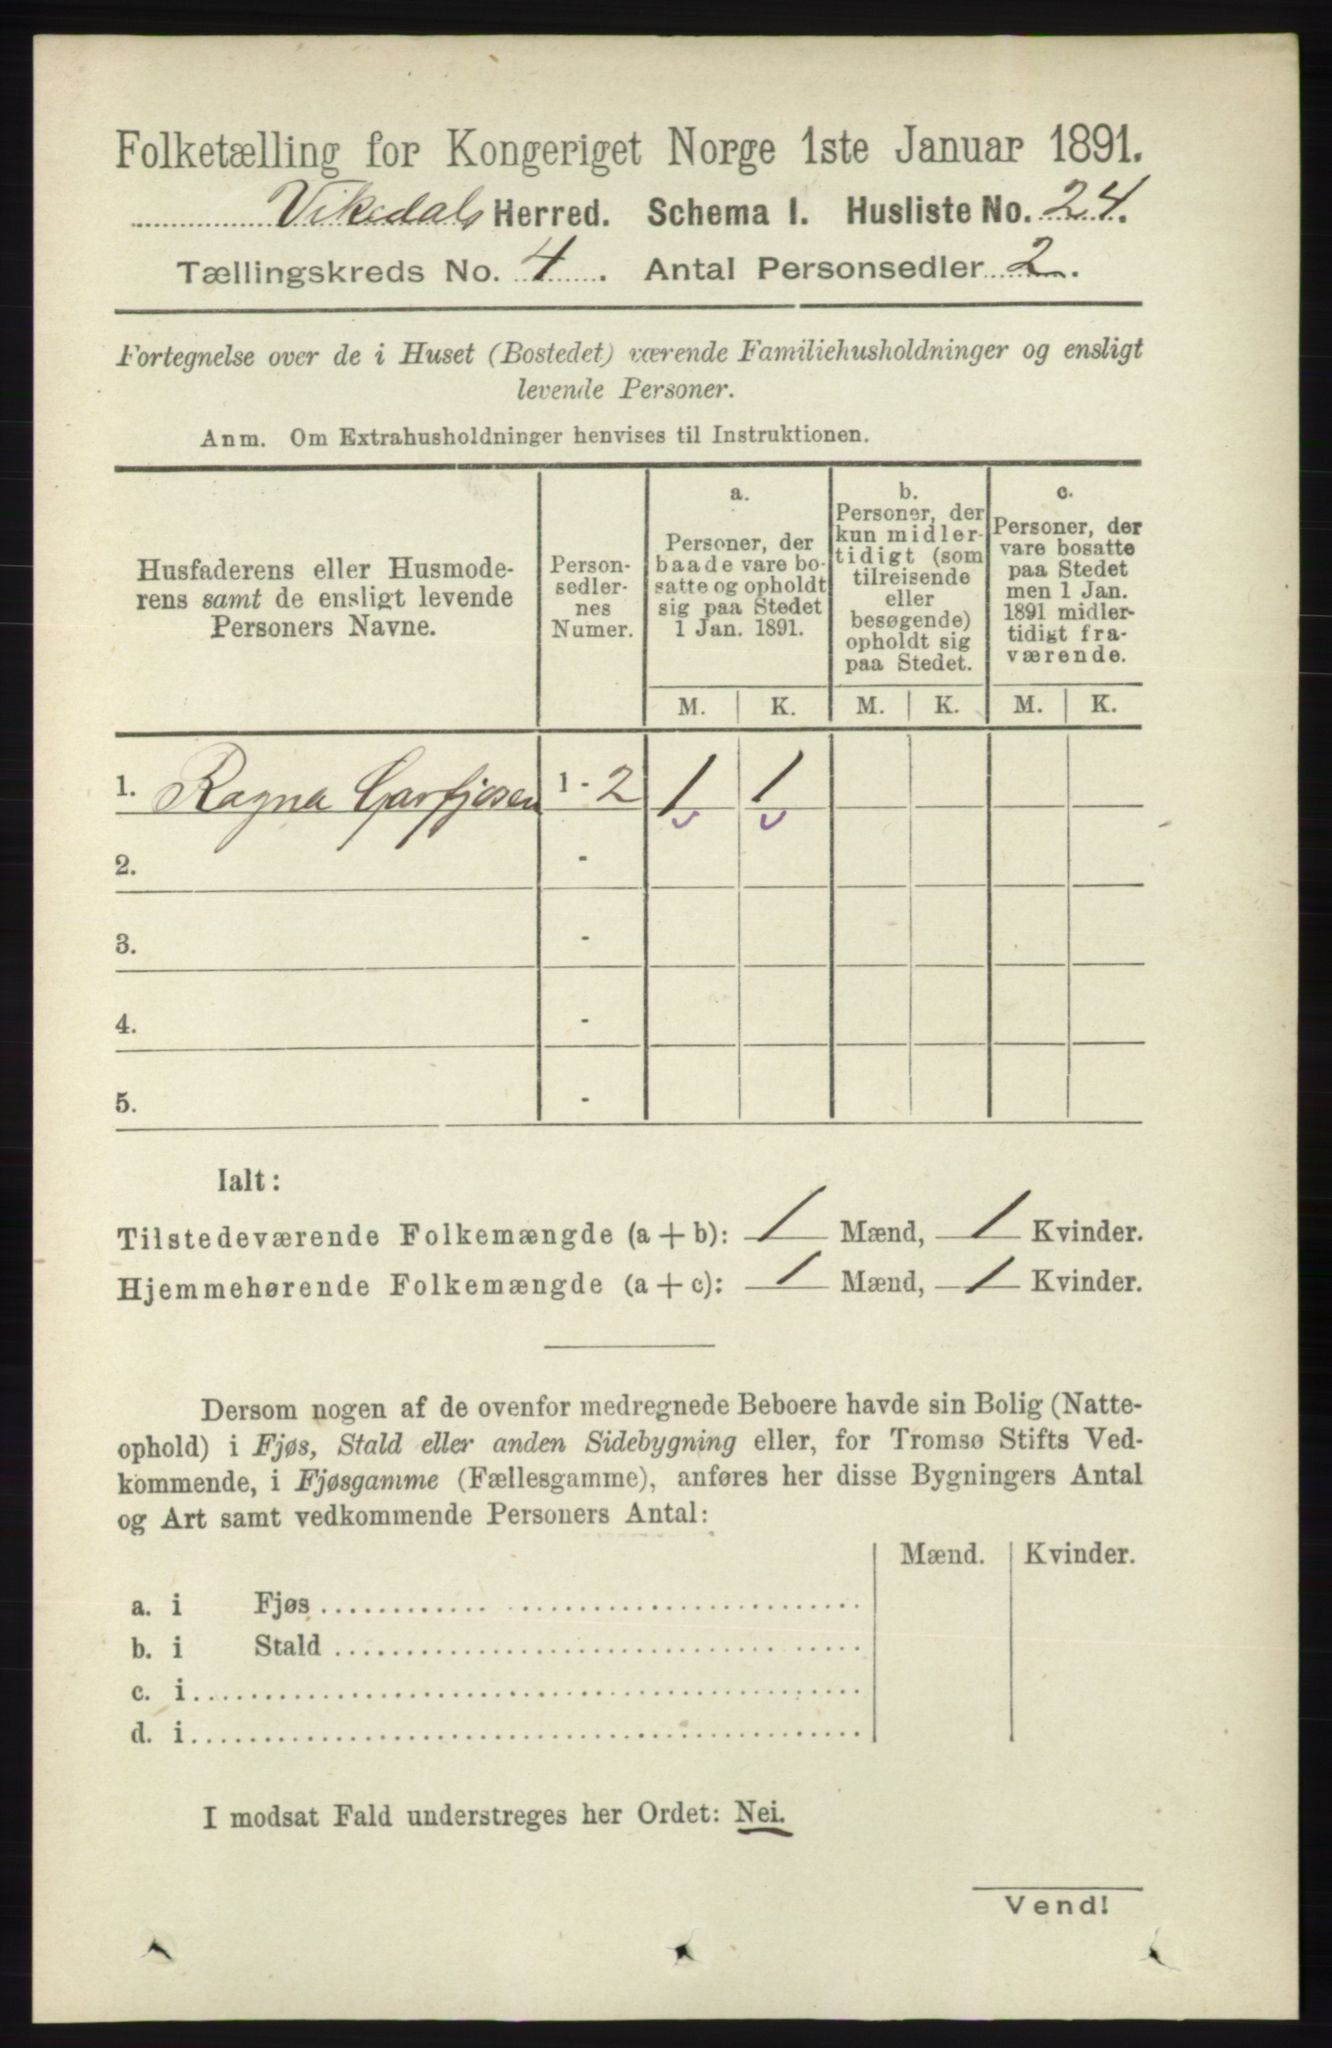 Folketælling for Kongeriget Norge 1ste Januar 1891.
Vikedals Herred. Schema I. Husliste No. 24.
Tællingskreds No. 4. Antal Personsedler 2.
Fortegnelse over de i Huset (Bostedet) værende Familiehusholdninger og ensligt
levende Personer.
Anm. Om Extrahusholdninger henvises til Instruktionen.
Husfaderens eller Husmode-
rens samt de ensligt levende
Personers Navne.
Person-
sedler-
nes
Numer.
a.
Personer, der
baade vare bo-
satte og opholdt
sig paa Stedet
1 Jan. 1891.
b.
Personer, der
kun midler-
tidigt (som
tilreisende
eller
besøgende)
opholdt sig
paa Stedet.
c.
Personer, der
vare bosatte
paa Stedet
men 1 Jan.
1891 midler-
tidigt fra-
værende.
M. K. M. K. M. K.
1. Ragna 1 - 2 1 1
2. -
3. -
4. -
5. -
Ialt:
Tilstedeværende Folkemængde (a + b): 1 Mænd, 1 Kvinder.
Hjemmehørende Folkemængde (a + c): 1 Mænd, 1 Kvinder.
Dersom nogen af de ovenfor medregnede Beboere havde sin Bolig (Natte-
ophold) i Fjøs, Stald eller anden Sidebygning eller, for Tromsø Stifts Ved-
kommende, i Fjøsgamme (Fællesgamme), anføres her disse Bygningers Antal
og Art samt vedkommende Personers Antal:
Mænd. Kvinder.
a. i Fjøs
b. i Stald
c. i
d. i
I modsat Fald understreges her Ordet: Nei.
Vend!